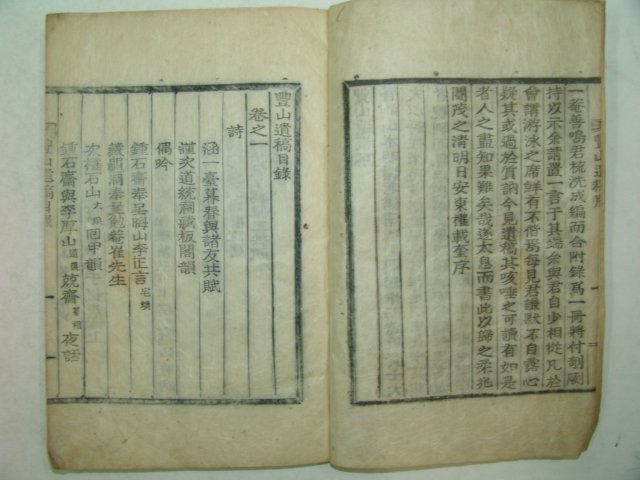 一菴善鳴君梳洗成編而合附錄爲一冊將付剞劂
持以示余請置一言于其端余與君自少相從凡於
會講游泳之席鮮有不偕焉每見君謙默不自露心
疑其或過於質訥今見遺稿其咳唾之可讀有如是
者人之盡知果難矣哉遂太息而書此以歸之柔兆
閹茂之淸明日安東權載奎序
豐山遺稿序
豐山遺稿目錄
卷之一
詩
涵一臺暮春與諸友共賦
謹次道統祠藏板閣韻
偶吟
鍾石齋奉呈晦山李正言宅煥
次權石山 回甲韻
鍾石齋與李厚山 兢齋 夜話
豐山遺稿目錄